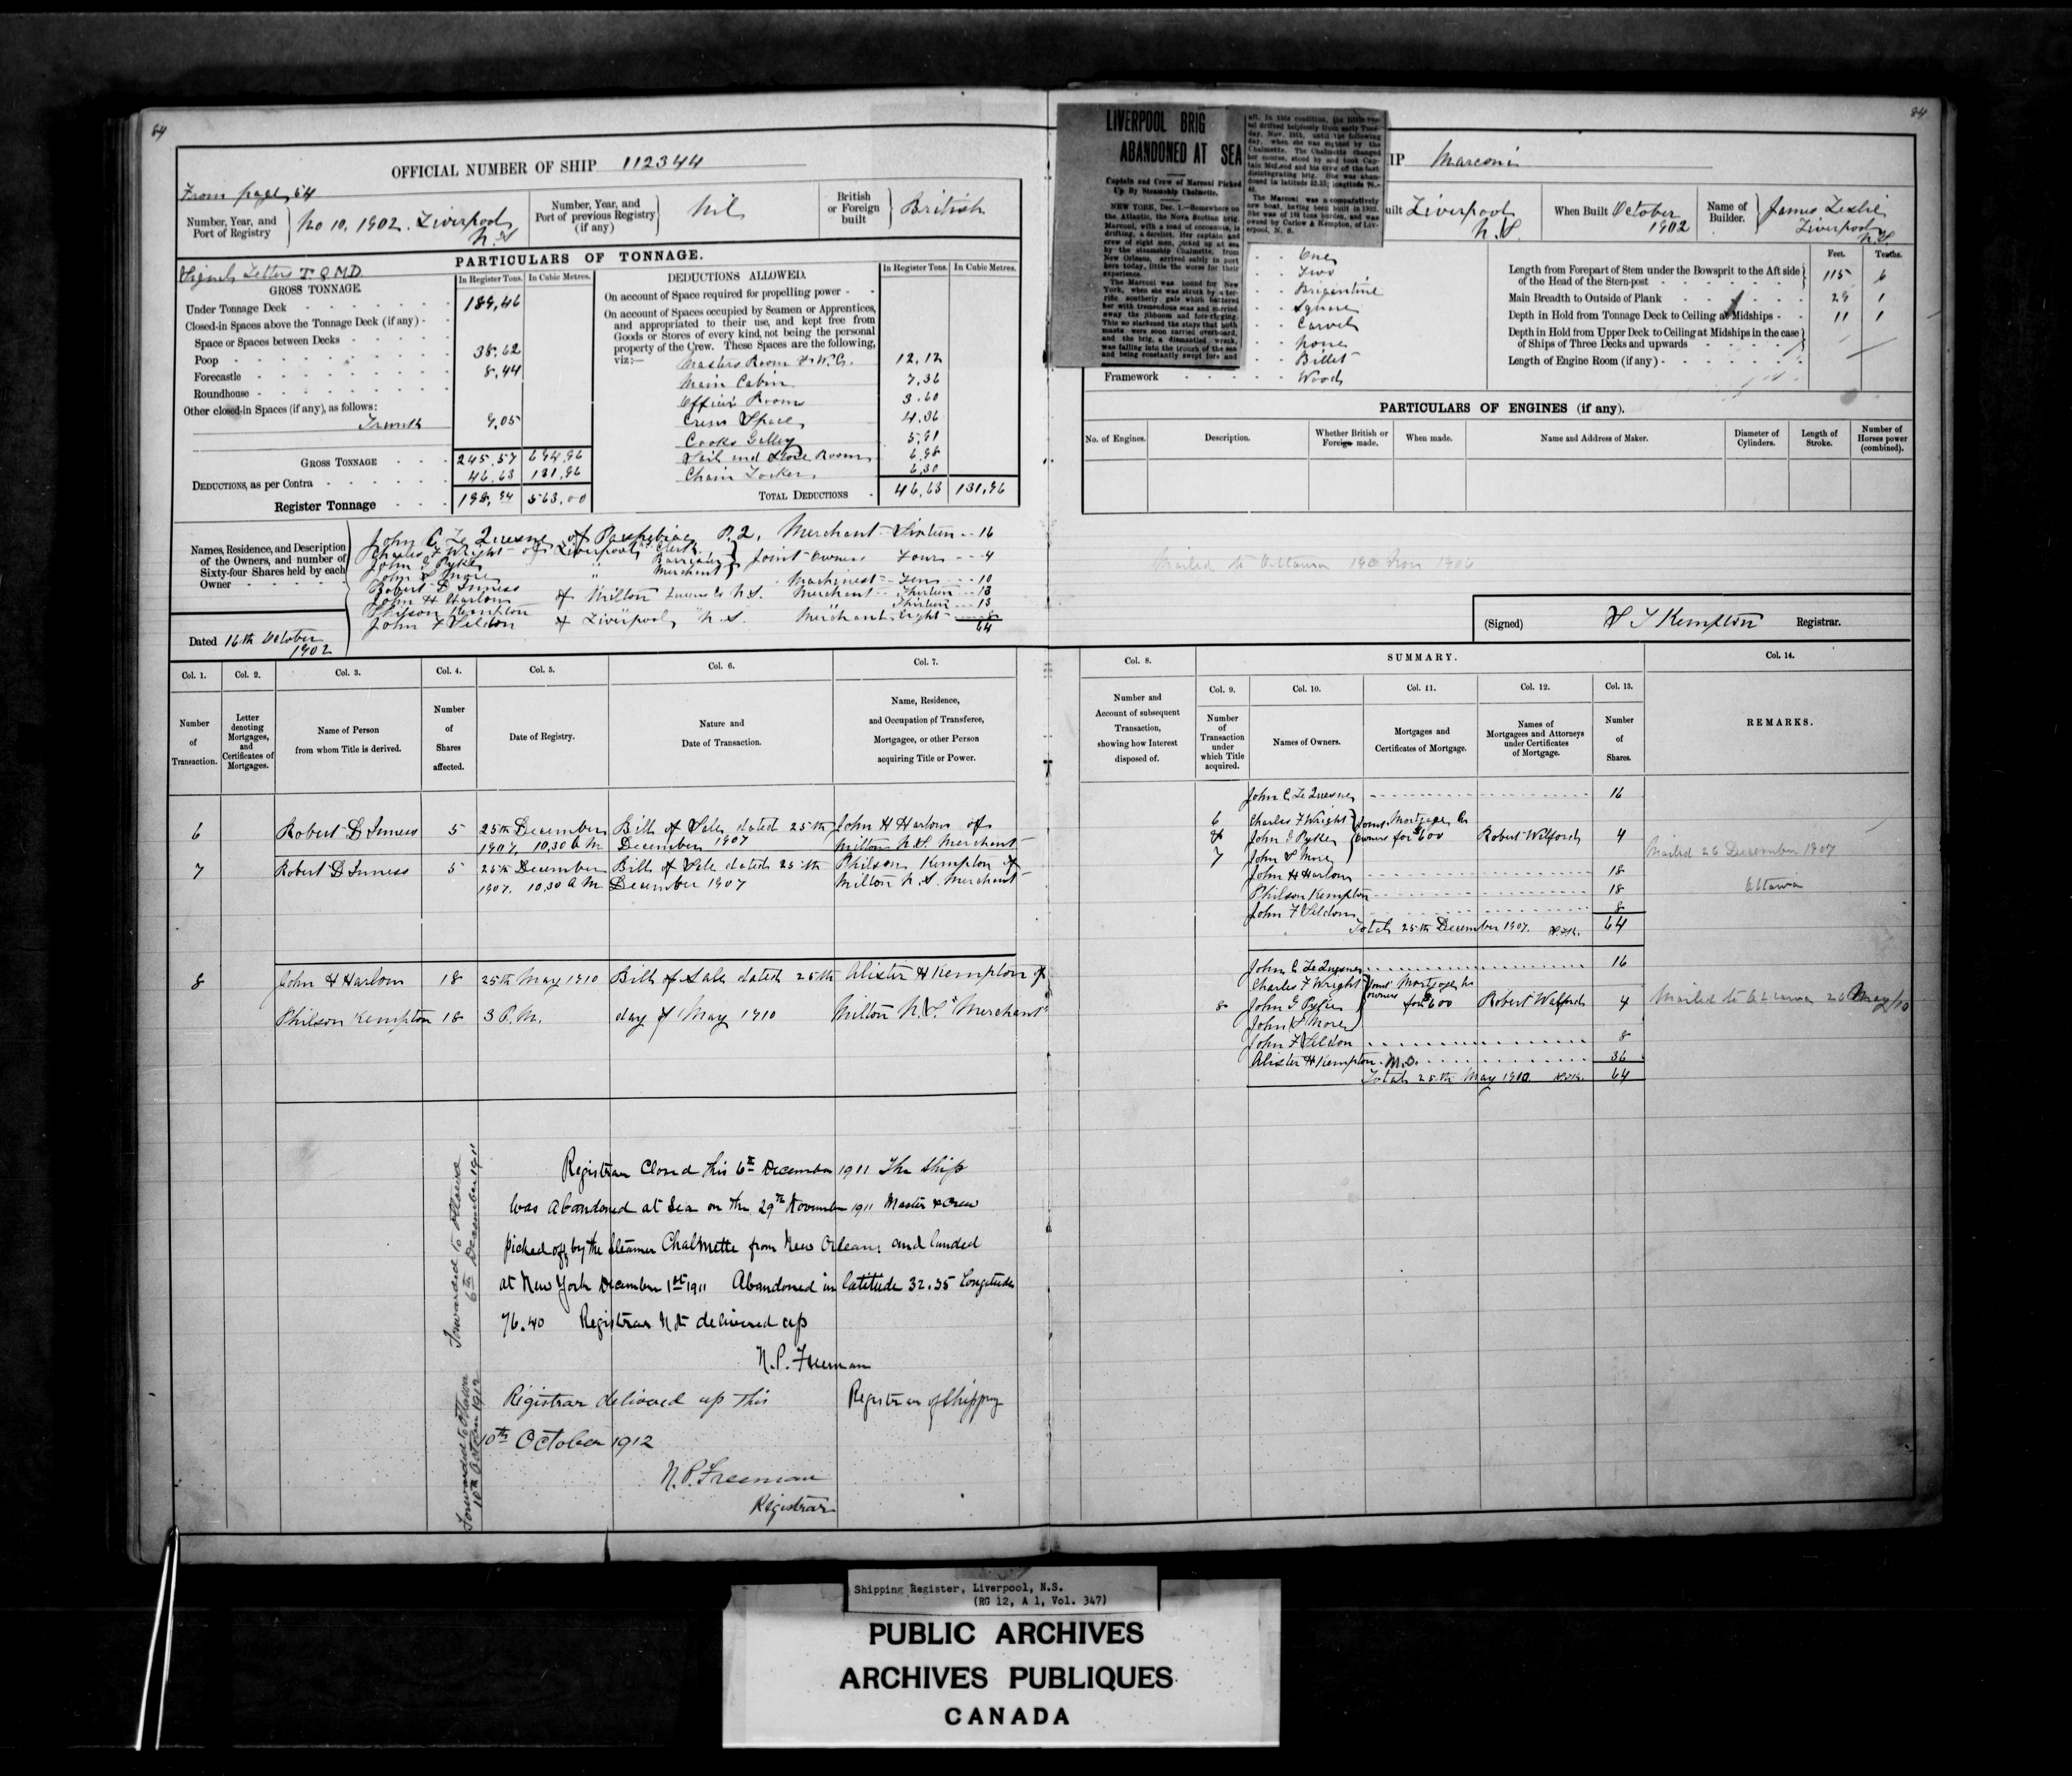 84
OFFICIAL NUMBER OF SHIP 112344
From page 54
Number, Year, and Port of Registry No 10, 1902. Liverpool N.S
Number, Year, and Port of previous Registry (if any) Nil
British or Foreign built British
PARTICULARS OF TONNAGE.
Signal Letters T.Q.M.D.
GROSS TONNAGE
In Register Tons. In Cubic Metres.
Under Tonnage Deck 189,46
Closed-in Spaces above the Tonnage Deck (if any)
Space or Spaces between Decks
Poop 38.62
Forecastle 8,44
Roundhouse
Other closed-in Spaces (if any), as follows:
9,05
GROSS TONNAGE 245,57 694,96
DEDUCTIONS, as per Contra 46,63 131,96
Register Tonnage 198,94 563,00
DEDUCTIONS ALLOWED.
In Register Tons. In Cubic Metres.
On account of Space required for propelling power
On account of Spaces occupied by Seamen or Apprentices,
and appropriated to their use, and kept free from
Goods or Stores of every kind, not being the personal
property of the Crew. These Spaces are the following,
viz:—
Masters Room & W.C. 12.12
Main Cabin 7,36
Officers Room 3.60
Crews Space 4.36
Cooks Galley 5,91
Sail and Store Room 6,98
Chain Locker 6,30
TOTAL DEDUCTIONS 46,63 131,96
Names, Residence, and Description of the Owners, and number of Sixty-four Shares held by each Owner
John C. Le Quesne of Paspebiac P.Q. Merchant Sixteen 16
Charles F Wright of Liverpool N.S. Clerk
John G Pyke Barrister Joint Owners Four 4
John S More " Merchant
Robert D Inness Machinest Ten 10
John H Harlow of Milton Queens Co N.S. Merchant Thirteen 13
Philson Kempton Thirteen 13
John F Seldon of Liverpool N.S. Merchant Eight 8
64
Dated 16th October 1902
Col. 1. Col. 2. Col. 3. Col. 4. Col. 5. Col. 6. Col. 7.
Number of Transaction.
Letter denoting Mortgages, and Certificates of Mortgages.
Name of Person from whom Title is derived.
Number of Shares affected.
Date of Registry.
Nature and Date of Transaction.
Name, Residence, and Occupation of Transferee, Mortgagee, or other Person acquiring Title or Power.
6 Robert D Inness 5 25th December Bill of Sale dated 25th John H Harlow of
1907, 10,30 A.M. December 1907 Milton N.S. Merchant
7 Robert D Inness 5 25th December Bill of Sale dated 25th Philson Kempton of
1907. 10.30 A M December 1907 Milton N.S. Merchant
8 John H Harlow 18 25th May 1910 Bill of Sale dated 25th Alister H Kempton of
Philson Kempton 18 3 P.M. day of May 1910 Milton N.S. "Merchant"
Registrar Closed this 6th December 1911 The Ship
was Abandoned at Sea on the 29th November 1911 Master & Crew
picked off by the Steamer Chalmette from New Orleans and landed
at New York December 1st 1911 Abandoned in latitude 32.35 Longitude
76.40 Registrar Not delivered up
N.P. Freeman
Registrar of Shipping
Registrar delivered up this
10th October 1912
N.P. Freeman
Registrar
Forwarded to Ottawa
6th December 1911
Forwarded to Ottawa
10th October 1912
84
LIVERPOOL BRIG
ABANDONED AT SEA
Captain and Crew of Marconi Picked
Up By Steamship Chalmette.
NEW YORK, Dec. 1.—Somewhere on
the Atlantic, the Nova Scotian brig
Marconi, with a load of cocoanuts, is
drifting, a derelict. Her captain and
crew of eight men, picked up at sea
by the steamship Chalmette, from
New Orleans, arrived safely in port
here today, little the worse for their
experience.
The Marconi was bound for New
York, when she was struck by a ter-
rific southerly gale which battered
her with tremendous seas and carried
away the jibboom and fore-rigging.
This so slackened the stays that both
masts were soon carried overboard,
and the brig, a dismantled wreck,
was falling into the trough of the sea
and being constantly swept fore and
aft. In this condition, the little ves-
sel drifted helplessly from early Tues-
day, Nov. 28th, until the following
day, when she was sighted by the
Chalmette. The Chalmette changed
her course, stood by and took Cap-
tain McLeod and his crew off the fast
disintegrating brig. She was aban-
doned in latitude 32.35; longitude 76.-
40.
The Marconi was a comparatively
new boat, having been built in 1902.
She was of 198 tons burden, and was
owned by Carlow & Kempton, of Liv-
erpool, N. S.
IP Marconi
uilt Liverpool N.S.
When Built October 1902
Name of Builder. James Leslie Liverpool N.S
One
Two
Brigantine
Square
Carvel
None
Billet
Framework Wood
Feet. Tenths.
Length from Forepart of Stem under the Bowsprit to the Aft side of the Head of the Stern-post 115 6
Main Breadth to Outside of Plank 29 1
Depth in Hold from Tonnage Deck to Ceiling at Midships 11 1
Depth in Hold from Upper Deck to Ceiling at Midships in the case of Ships of Three Decks and upwards
Length of Engine Room (if any)
PARTICULARS OF ENGINES (if any).
No. of Engines. Description. Whether British or Foreign made. When made. Name and Address of Maker. Diameter of Cylinders. Length of Stroke. Number of Horses power (combined).
Mailed to Ottawa
(Signed) S T Kempton Registrar.
Col. 8. SUMMARY. Col. 14.
Col. 9. Col. 10. Col. 11. Col. 12. Col. 13.
Number and Account of subsequent Transaction, showing how Interest disposed of.
Number of Transaction under which Title acquired.
Names of Owners.
Mortgages and Certificates of Mortgage.
Names of Mortgagees and Attorneys under Certificates of Mortgage.
Number of Shares.
REMARKS.
John C Le Quesne 16
6 Charles F Wright Joint Mortgage
& John G Pyke Owners for $600 Robert Welford 4
7 John S More
Mailed 26 December 1907
John H Harlow 18
Philson Kempton 18 Ottawa
John F Seldon 8
Total 25th December 1907. 64
John C Le Quesne 16
Charles F Wright Joint Mortgage
8 John G Pyke owners for $600 Robert Welford 4 Mailed to Ottawa 26 May/10
John S More
John F Seldon 8
Alister H Kempton. M.O. 36
Total 25th May 1910. 64
Shipping Register, Liverpool, N.S.
(RG 12, A 1, Vol. 347)
PUBLIC ARCHIVES
ARCHIVES PUBLIQUES
CANADA